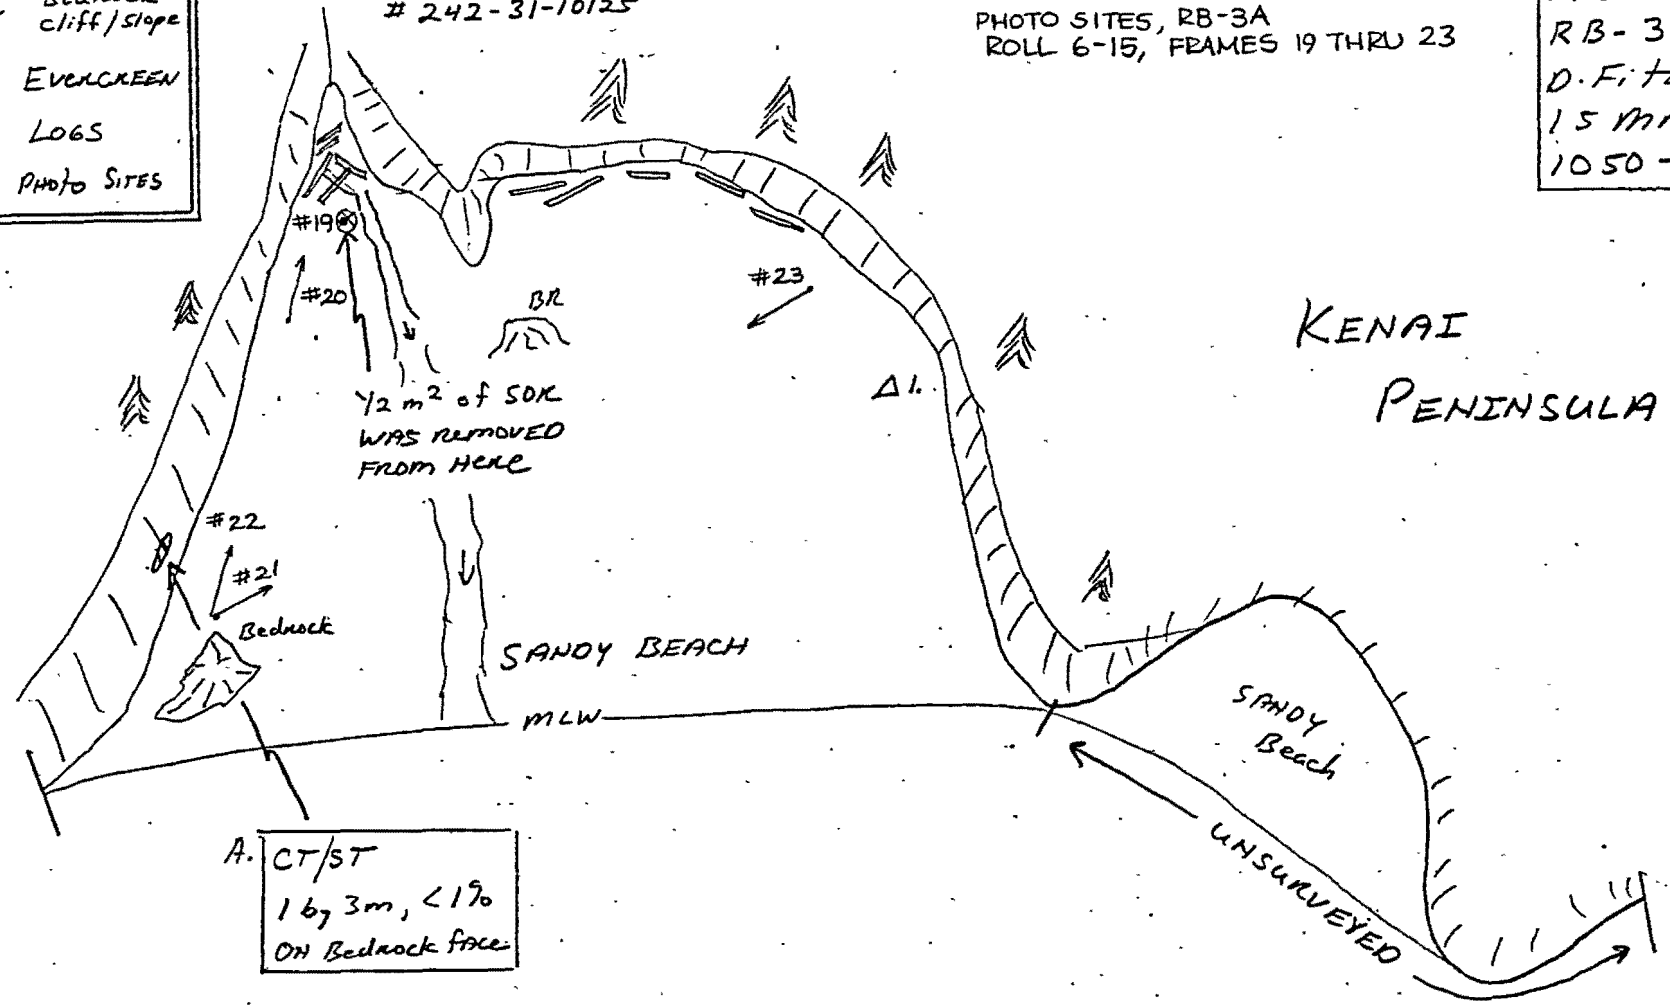 cliff/slope
EVERGREEN
LOGS
PHOTO SITES
# 242-31-10125
PHOTO SITES, RB-3A
ROLL 6-15, FRAMES 19 THRU 23
RB-3
D. Fit
15 m
1050-
#19
#20
#23
BR
Δ1.
KENAI
PENINSULA
1/2 m² of SOR
WAS REMOVED
FROM HERE
#22
#21
Bedrock
SANDY BEACH
MLW
SANDY
Beach
UNSURVEYED
A. CT/ST
1 by 3m, <1%
ON Bedrock face